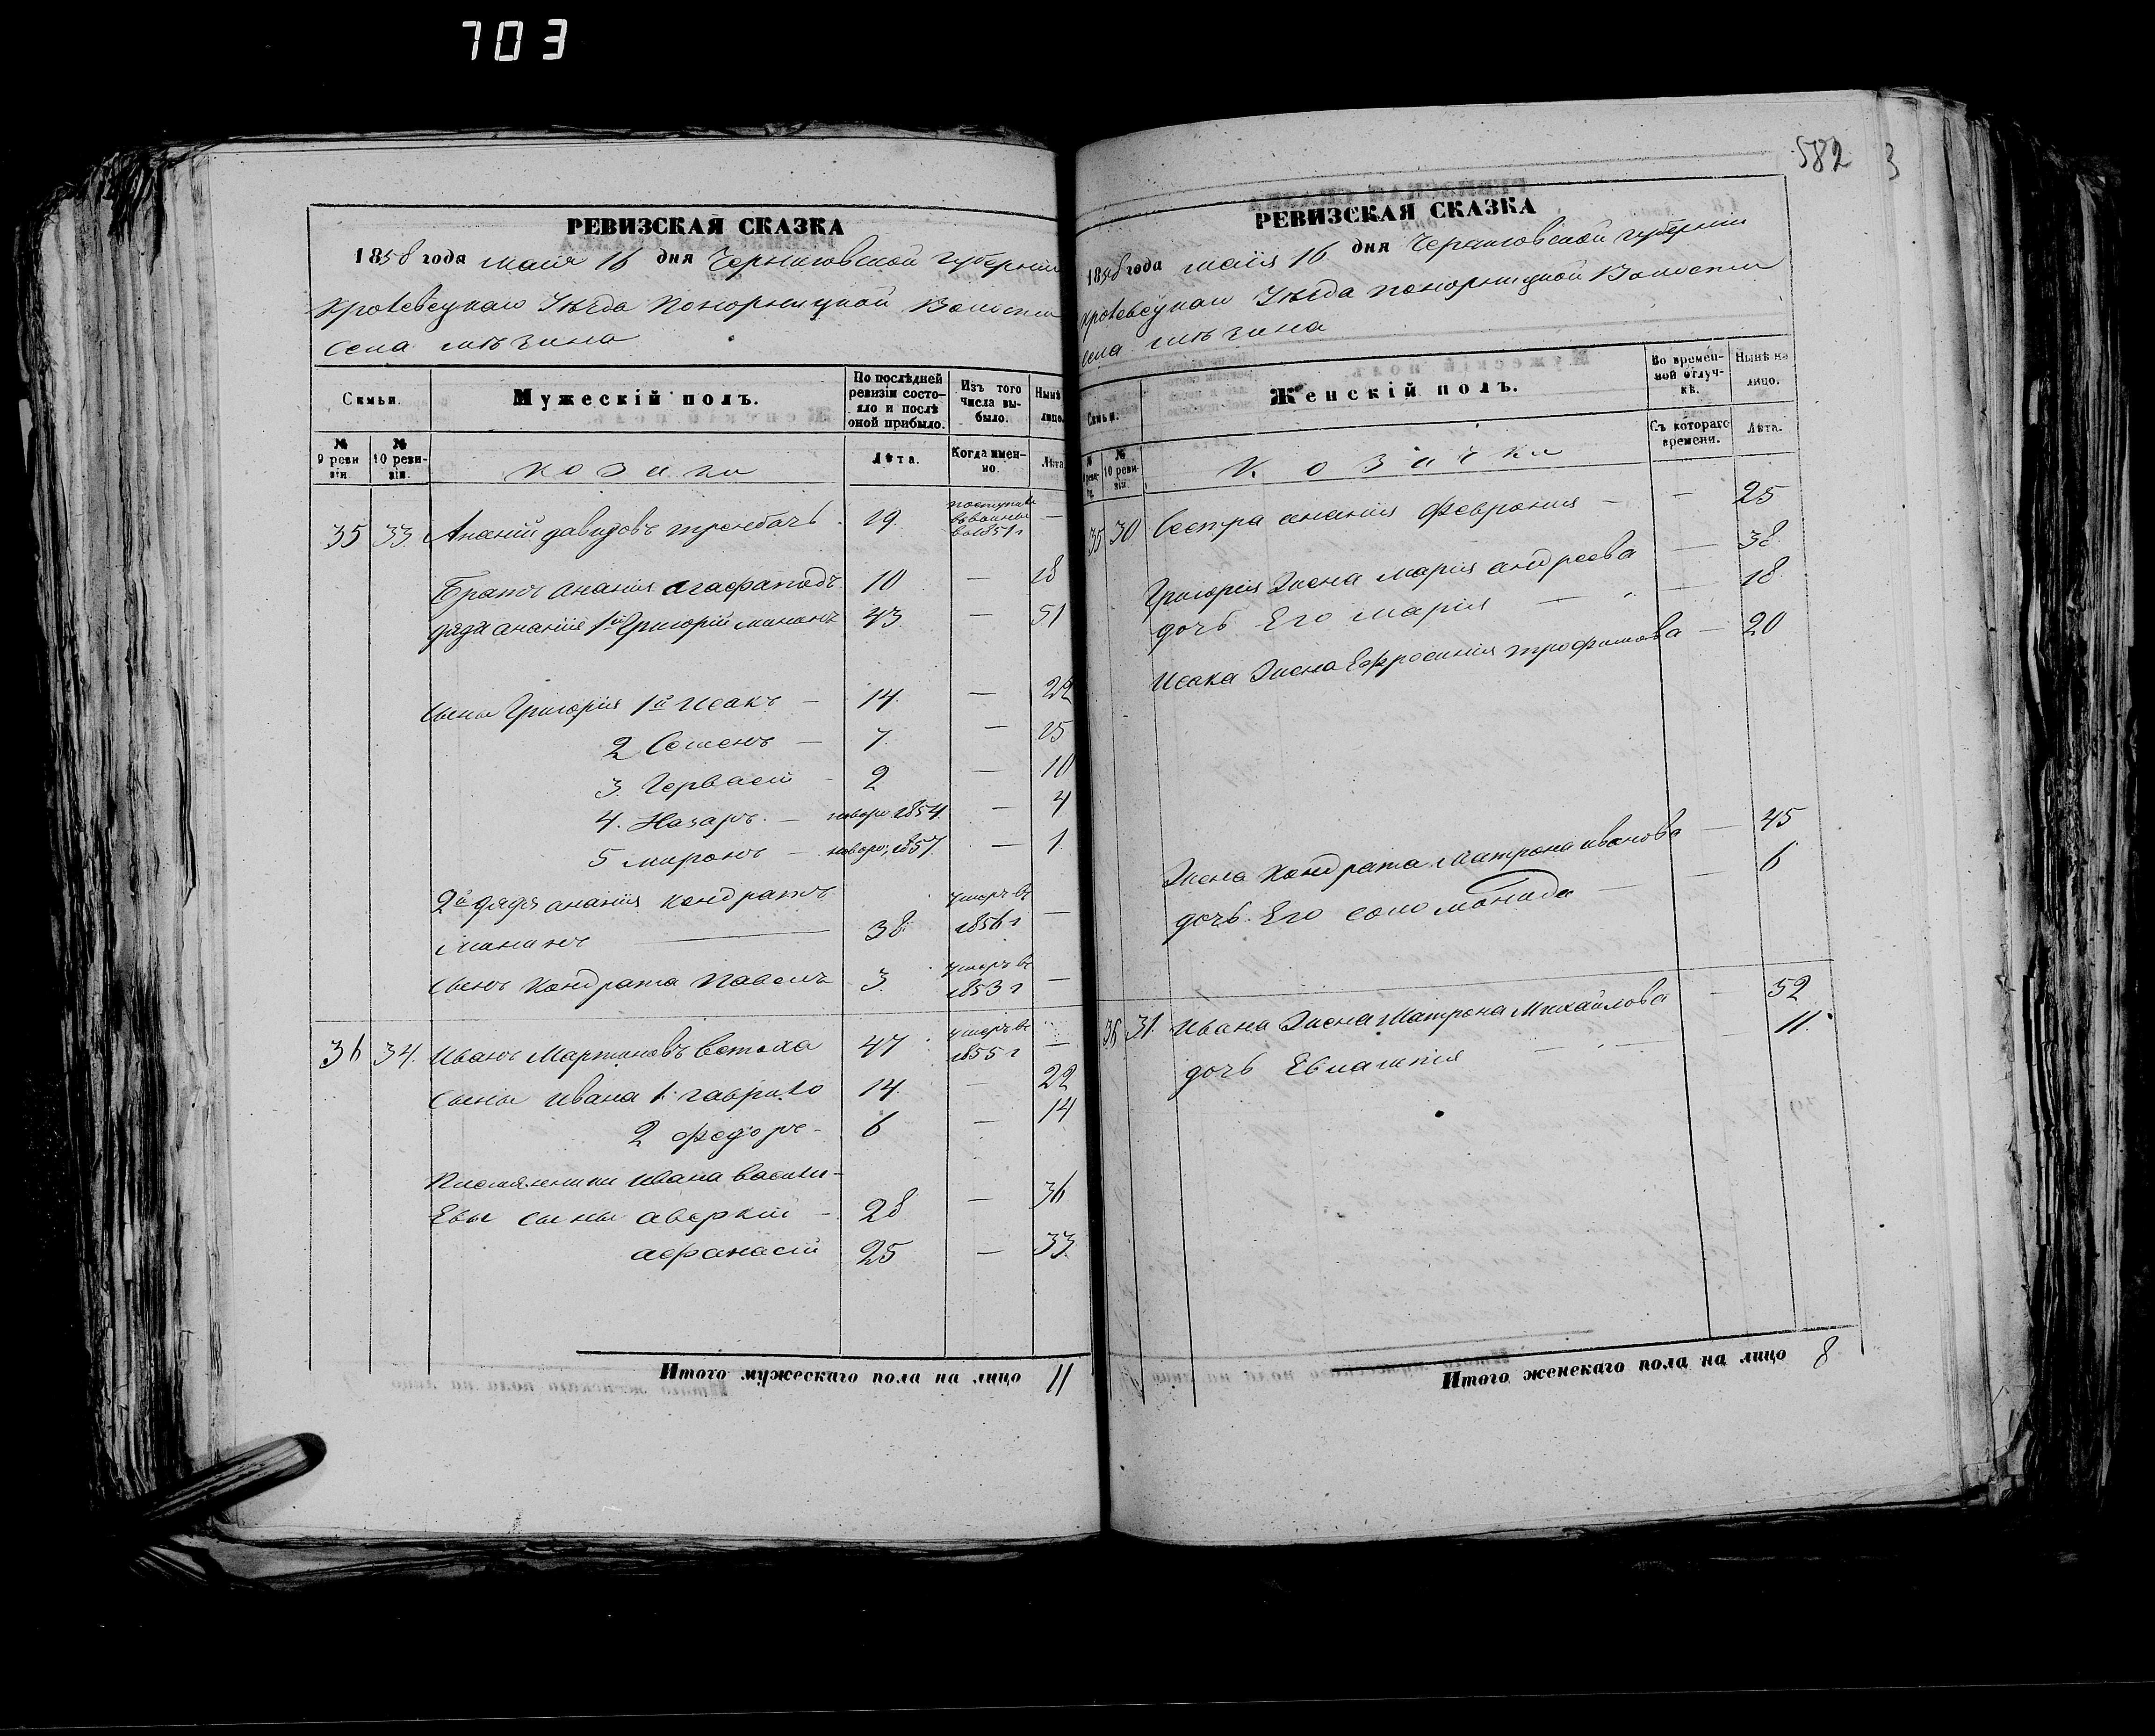 703
582 3
РЕВИЗСКАЯ СКАЗКА
1858 года маия 16 дня Черниговской губернии
Кролевецкаго Уѣзда Понорницкой Волости
Села мѣзина
Семьи.
Мужескій полъ.
По послѣдней ревизіи состояло и послѣ оной прибыло.
Изъ того числа выбыло.
Нынѣ лицо.
№ 9 ревизіи.
№ 10 ревизіи.
козаки
Лѣта.
Когда именно.
Лѣта
35 33 Ананій давидовъ трембачъ 19. поступилъ въ 1851 г —
Братъ анания агафаподъ 10 — 18
дядя анания 1й Григорій мининъ 43 — 51
сыны Григория 1й Исакъ — 14. — 22
2 Семенъ — 7. — 15
3. Гервасій - 2 — 10
4. Назаръ. — новоро 1854. — 4
5 миронъ — новоро; 1857. — 1.
2й дядя анания кондратъ
мининъ 38. умеръ въ 1856 г —
сынъ Кондрата Павелъ 3. умеръ въ 1853 г —
36 34. Иванъ Мартиновъ Ветоха 47 умеръ въ 1855 г —
сыны ивана 1. гаврило 14. — 22
2 федоръ - 6 — 14
Племянники ивана васили-
Евы сыны аверкій - 28 — 36
афанасій 25 — 33.
Итого мужескаго пола на лицо 11
РЕВИЗСКАЯ СКАЗКА
1858 года маия 16 дня Черниговской губернии
Кролевецкаго Уѣзда понорницкой Волости
села мѣзина
Семьи.
Женскій полъ.
Во временной отлучкѣ.
Нынѣ на лицо.
№ 10 ревизіи.
Козачки
Съ котораго времени.
Лѣта.
35 30 Сестра анания Феврония — — 25
Григория Жена мария андреева — 38.
дочь Его мария — — 18.
Исака Жена Ефросиния трофимова — 20
Жена Кондрата Матрона иванова — 45
дочь Его соломонида — — 6
36 31. Ивана Жена Матрона Михайлова - 52
дочь Евлампия — — 11.
Итого женскаго пола на лицо 8